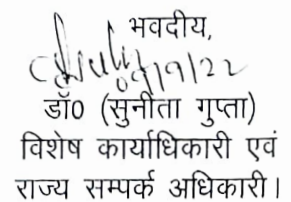 भवदीय,
09/9/22
डॉ0 (सुनीता गुप्ता)
विशेष कार्याधिकारी एवं
राज्य सम्पर्क अधिकारी।